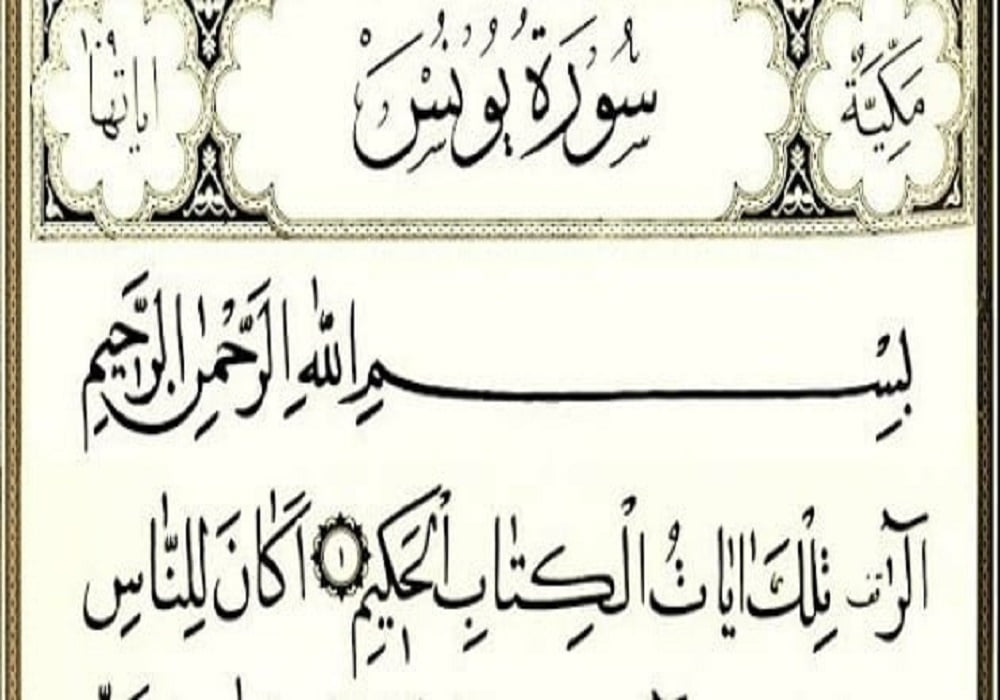 مَكِّيَّةٌ سُورَةُ يُونُسَ اٰيَاتُهَا ١٠٩
بِسْمِ اللّٰهِ الرَّحْمٰنِ الرَّحِيمِ
الٓرٰ تِلْكَ اٰيَاتُ الْكِتَابِ الْحَكِيمِ ١ اَكَانَ لِلنَّاسِ